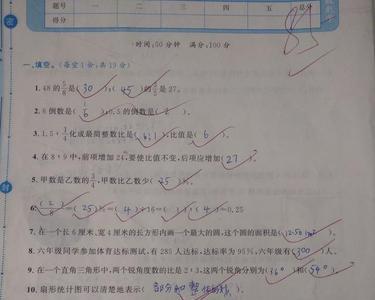 题号 一 二 三 四 五 总分
得分
时间:50分钟 满分:100分
一、填空。(每空1分,共19分)
1. 48的5/8是( 30 ),( 45 )的3/5是27。
2. 6倒数是( 1/6 ),0.5的倒数是( 2 )。
3. 1.5∶1/4化成最简整数比是( 6:1 ),比值是( 6 )。
4. 在8∶9中,前项增加24,要使比值不变,后项应增加( 27 )。
5. 甲数是乙数的3/4,甲数比乙数少( 25 )%。
6. =( 25 )%=( 4 )÷16= =0.25
7. 在一个长6厘米,宽4厘米的长方形内画一个最大的圆,这个圆的面积是( 12.56cm² )。
8. 六年级同学参加体育达标测试,有285人达标,达标率为95%,六年级有( 300 )人。
9. 在一个直角三角形中,两个锐角度数的比是2∶3,这两个锐角分别为( 36° )和( 54° )。
扇形统计图可以清楚地表示( 部分和整体的 )。